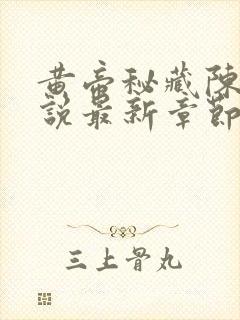 黄帝秘藏陳
說最新章節
三上骨丸